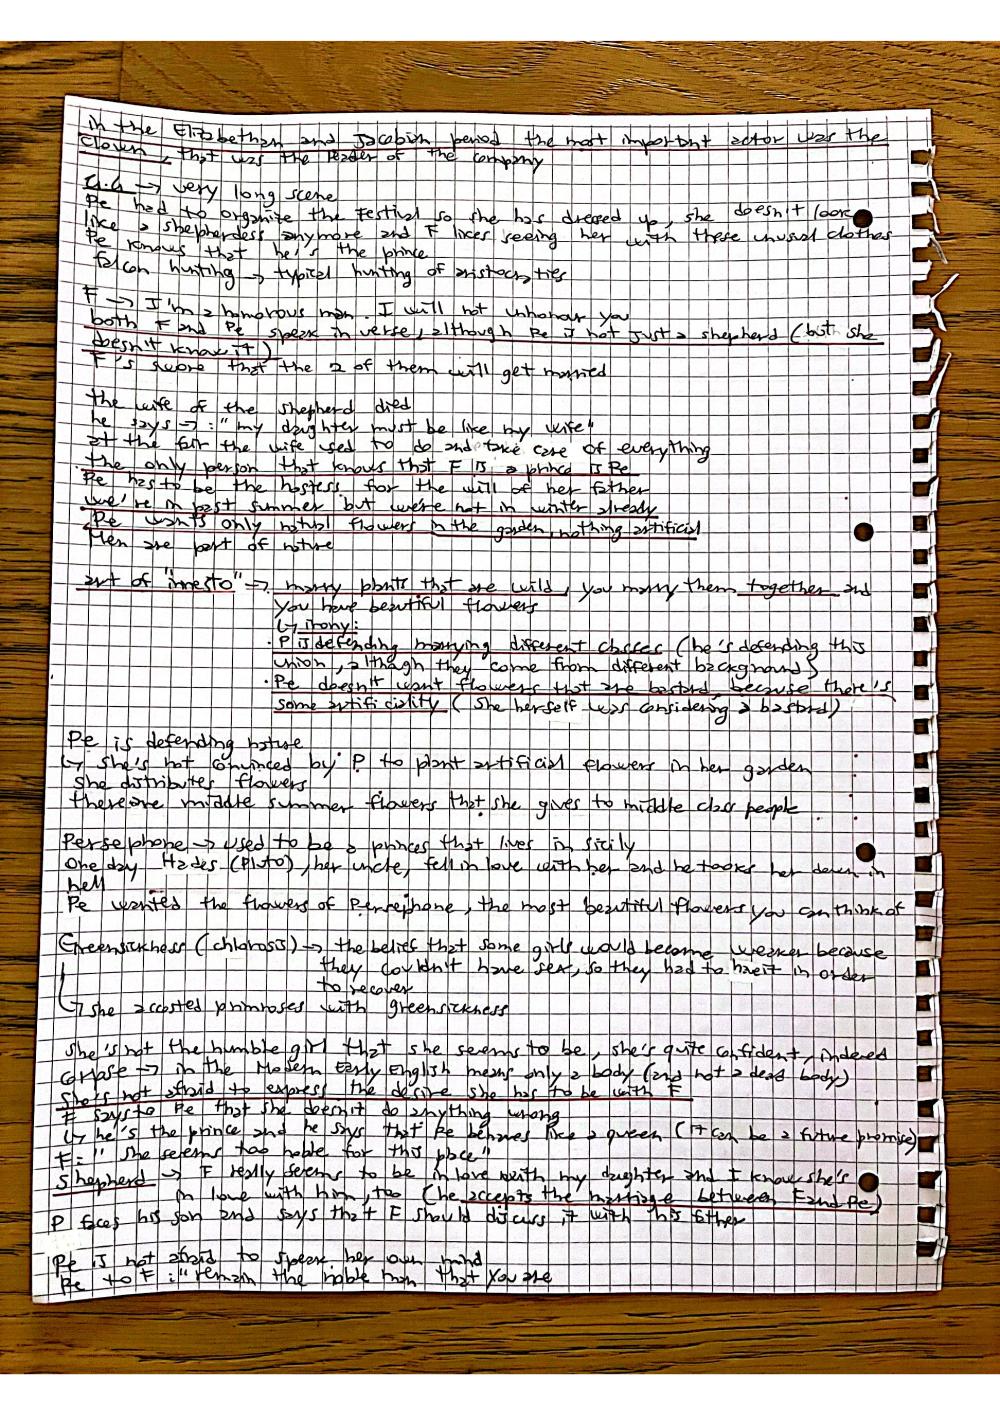 in the Elizabethan and Jacobin period the most important actor was the
clown, that was the leader of the company
4.4 → very long scene
Pe had to organize the Festival so she has dressed up, she doesn't look
like a shepherdess anymore and F likes seeing her with these unusual clothes
Pe knows that he's the prince
falcon hunting → typical hunting of aristocraties
F → I'm a honorous man. I will not unhonour you
both F and Pe speak in verse, although Pe is not just a shepherd (but she
doesn't know it)
F's swore that the 2 of them will get married
the wife of the shepherd died
he says → : "my daughter must be like my wife"
at the fair the wife used to do and take care of everything
the only person that knows that F is a prince is Pe
Pe has to be the hostess for the will of her father
we're in past summer but we're not in winter already
Pe wants only natural flowers in the garden, nothing artificial
Men are part of nature
art of "innesto" → marry plants that are wild, you marry them together and
you have beautiful flowers
↳ irony:
· P is defending marrying different classes (he's defending this
union, although they come from different background)
· Pe doesn't want flowers that are bastard, because there's
some artificiality (she herself was considering a bastard)
Pe is defending nature
↳ she's not convinced by P to plant artificial flowers in her garden
she distributes flowers
there are middle summer flowers that she gives to middle class people
Persephone → used to be a princes that lives in sicily
One day Hades (Pluto), her uncle, fell in love with her and he tooks her down in
hell
Pe wanted the flowers of Persephone, the most beautiful flowers you can think of
Greensickness (chlorosis) → the belief that some girls would become weaker because
they couldn't have sex, so they had to have it in order
to recover
↳ she accosted primroses with greensickness
she's not the humble girl that she seems to be, she's quite confident, indeed
corpse → in the Modern Early English means only a body (and not a dead body)
she's not afraid to express the desire she has to be with F
F says to Pe that she doesn't do anything wrong
↳ he's the prince and he says that Pe behaves like a queen (it can be a future promise)
F: "she seems too noble for this place"
Shepherd → F really seems to be in love with my daughter and I know she's
in love with him, too (he accepts the marriage between F and Pe)
P faces his son and says that F should discuss it with his father
Pe is not afraid to speak her own mind
Pe to F: "remain the noble man that you are